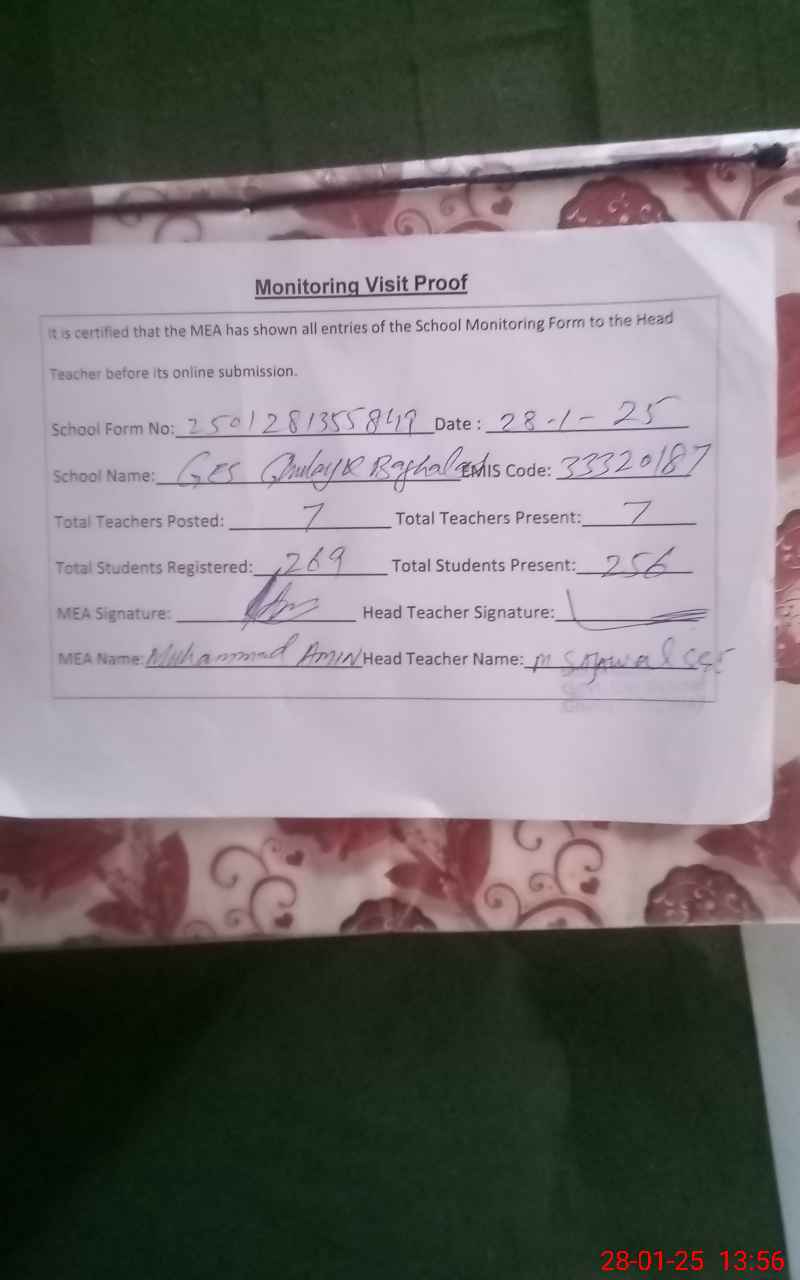 Monitoring Visit Proof
It is certified that the MEA has shown all entries of the School Monitoring Form to the Head
Teacher before its online submission.
School Form No: 2501281355849 Date : 28-1-25
School Name: GES Baghalad EMIS Code: 33320187
Total Teachers Posted: 7 Total Teachers Present: 7
Total Students Registered: 269 Total Students Present: 256
MEA Signature: Head Teacher Signature:
MEA Name: Muhammad AMIN Head Teacher Name: M
28-01-25 13:56